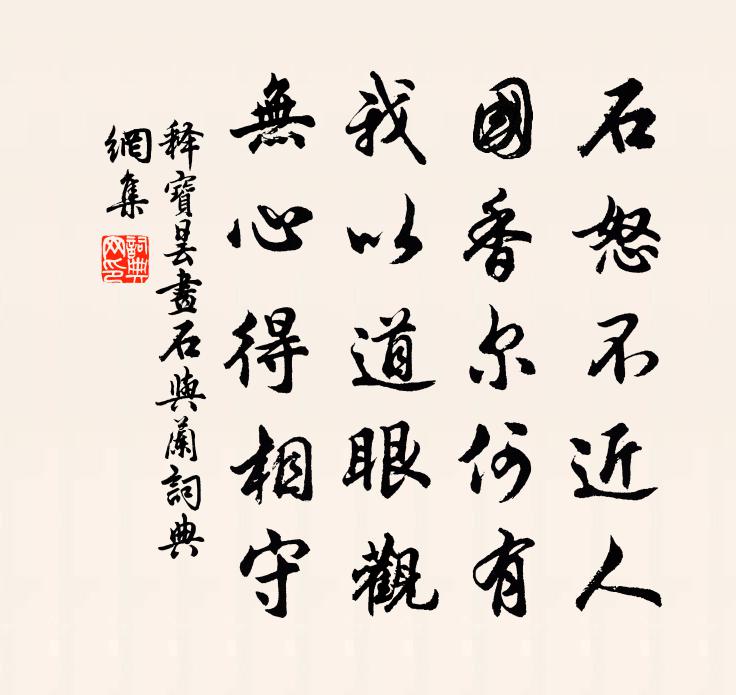 石怒不近人
國香尔何有
我以道眼觀
無心得相守
释寶昙畫石與蘭詞典
網集
詞典
网印